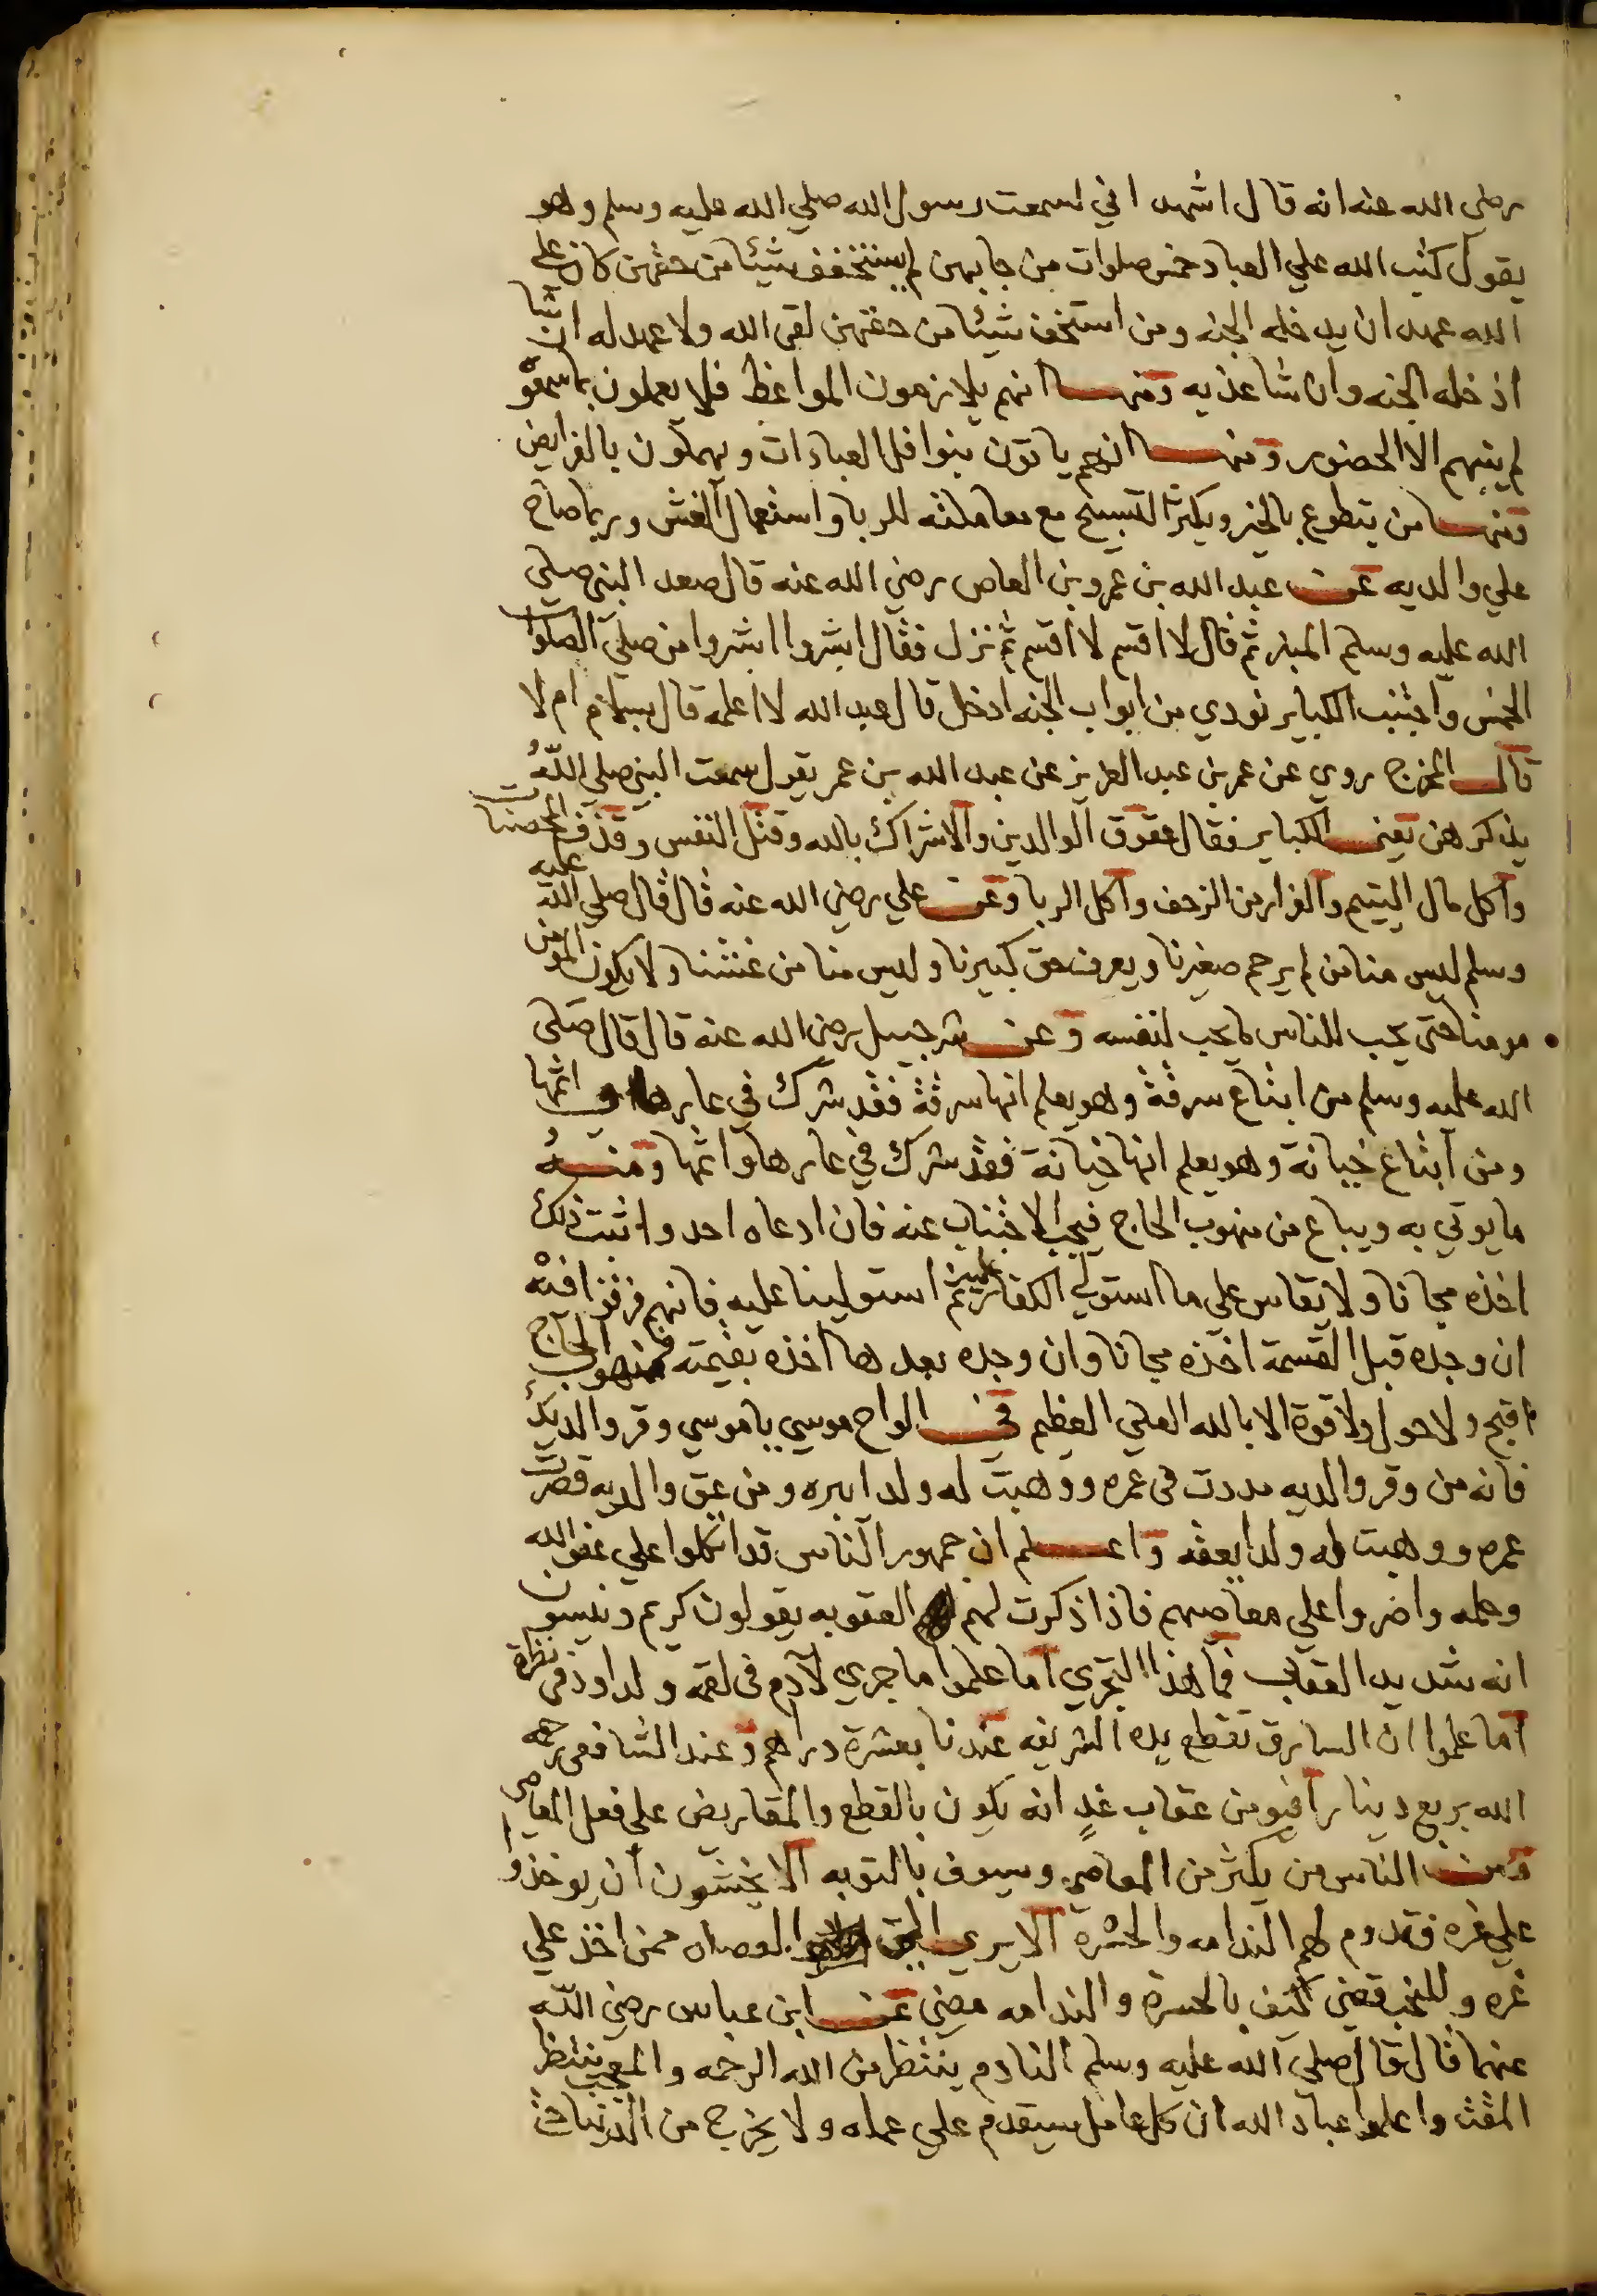 رضي الله عنه انه قال اشهد اني لسمعت رسول الله صلي الله عليه وسلم وهو
يقول كتب الله علي العباد خمس صلوات من جا بهن لم يستخفف شيئا من حقهن كان علي
الله عهد ان يدخله الجنه ومن استخف شيئا من حقهن لقي الله ولا عهد له ان شا
ادخله الجنه وان شا عذبه ومنها انهم يلازمون المواعظ فلا يعملون بما سمعوه
لم يتهم الا الحضور ومنها انهم ياتون بنوافل العبادات ويهملون بالفرايض
ومنها من يتطوع بالخير ويكثر التسبيح مع معاملته للربا واستعمال الغش وربما صاح
علي والديه عن عبد الله بن عمرو بن العاص رضي الله عنه قال صعد النبي صلي
الله عليه وسلم المنبر ثم قال لا اقسم لا اقسم ثم نزل فقال ابشروا ابشروا من صلي الصلوات
الخمس واجتنب الكباير نودي من ابواب الجنه ادخل قال عبد الله لا اعلمه قال بسلام ام لا
قال المخرج روي عن عمر بن عبد العزيز عن عبد الله بن عمر يقول سمعت النبي صلي الله
يذكرهن يعني الكباير فقال عقوق الوالدين والاشراك بالله وقتل النفس وقذف المحصنات
واكل مال اليتيم والفرار من الزحف واكل الربا وعن علي رضي الله عنه قال قال صلي الله عليه
وسلم ليس منا من لم يرحم صغيرنا ويعرف حق كبيرنا وليس منا من غشنا ولا يكون المومن
مومنا حتي يحب للناس ما يحب لنفسه وعن شرحبيل رضي الله عنه قال قال صلي
الله عليه وسلم من ابتاع سرقة وهو يعلم انها سرقة فقد شرك في عارها و اثمها
ومن ابتاع خيانة وهو يعلم انها خيانة فقد شرك في عارها واثمها ومنه
ما يوتي به ويباع من منهوب الحاج فيجب الاجتناب عنه فان ادعاه احد واثبت ذلك
اخذه مجانا ولا يقاس علي ما استولي الكفار عليه ثم استولينا عليه فانهم فرقوا فيه
ان وجده قبل القسمة اخذه مجانا وان وجده بعدها اخذه بقيمته فمنهوب الحاج
اقبح ولا حول ولا قوة الا بالله العلي العظيم في الواح موسي يا موسي وقر والديك
فانه من وقر والديه مددت في عمره ووهبت له ولدا يبره ومن عق والديه قصرت
عمره ووهبت له ولدا يعقه واعلم ان جمهور الناس قد اتكلوا علي عفو الله
وحلمه واصروا علي معاصيهم فاذا ذكرت لهم العقوبه يقولون كريم وينسون
انه شديد العقاب فما هذا التجري اما علموا ما جري لادم في لقمه ولداود في نظرة
اما علموا ان السارق تقطع يده الشريفه عندنا بعشرة دراهم وعند الشافعي رحمه
الله بربع دينار افيومن عقاب غد انه يكون بالقطع والمقاريض علي فعل المعاصي
ومن الناس من يكثر من المعاصي ويسوف بالتوبه الا يخشون ان يوخذوا
علي غره فتدوم لهم الندامه والحسرة الا يري العصاه ممن اخذ علي
غره وللنحب قضي كيف بالحسرة والندامه مضي عن ابن عباس رضي الله
عنهما قال قال صلي الله عليه وسلم النادم ينتظر من الله الرحمه والمعجب ينتظر
المقت واعلموا عباد الله ان كل عامل سيقدم علي عمله ولا يخرج من الدنيا حتى